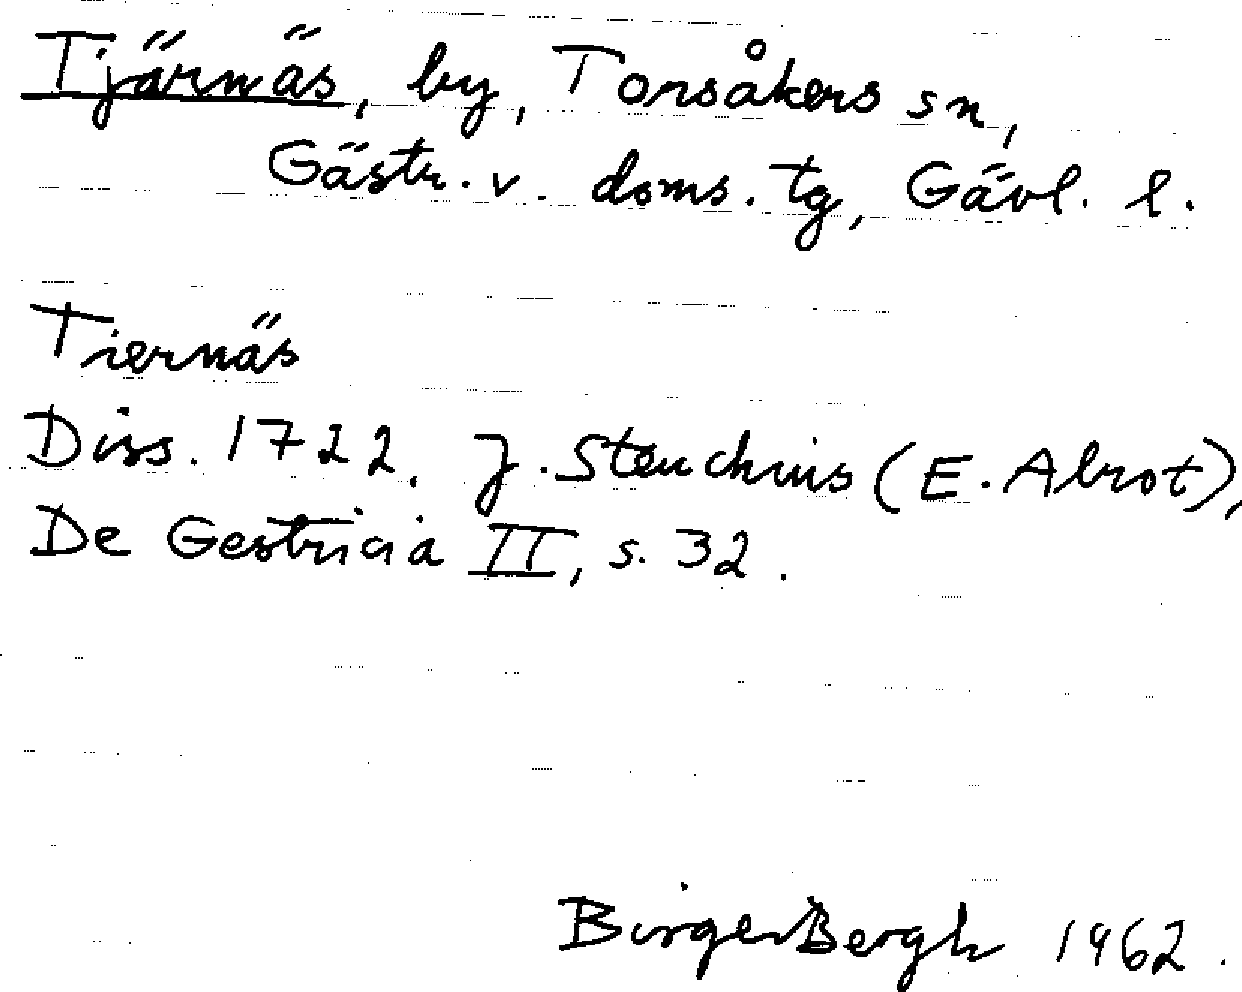 Tjärnäs, by, Torsåkers sn,
Gästr. v. doms. tg, Gävl. l.
Tiernäs
Diss. 1722. J. Steuchius (E. Abrot),
De Gestricia II, s. 32.
Birger Bergh 1962.